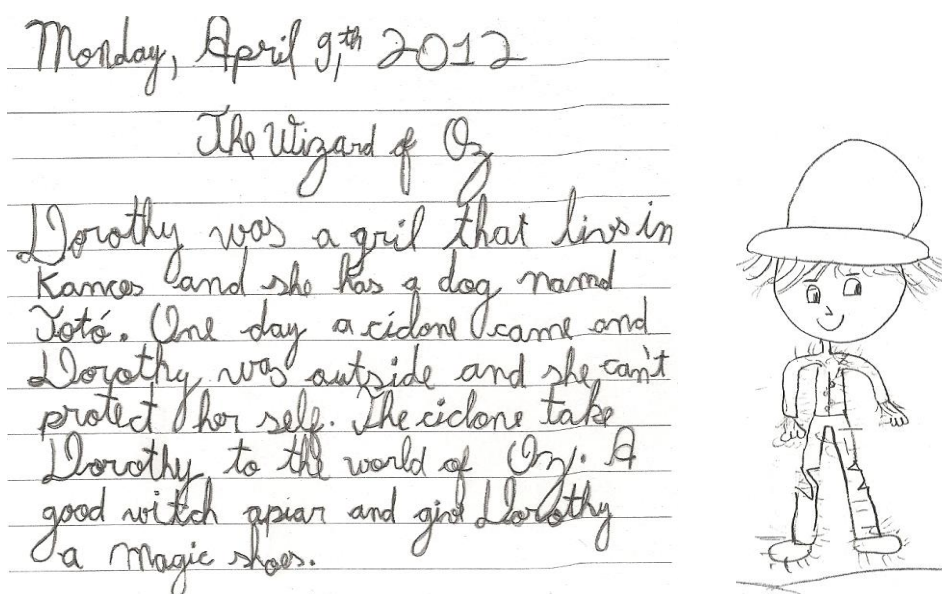 Monday, April 9,th 2012
The Wizard of Oz
Dorothy was a gril that livs in
Kances and she has a dog namd
Totó. One day a ciclone came and
Dorothy was outside and she can't
protect her self. The ciclone take
Dorothy to the world of Oz. A
good witch apiar and give Dorothy
a magic shoes.